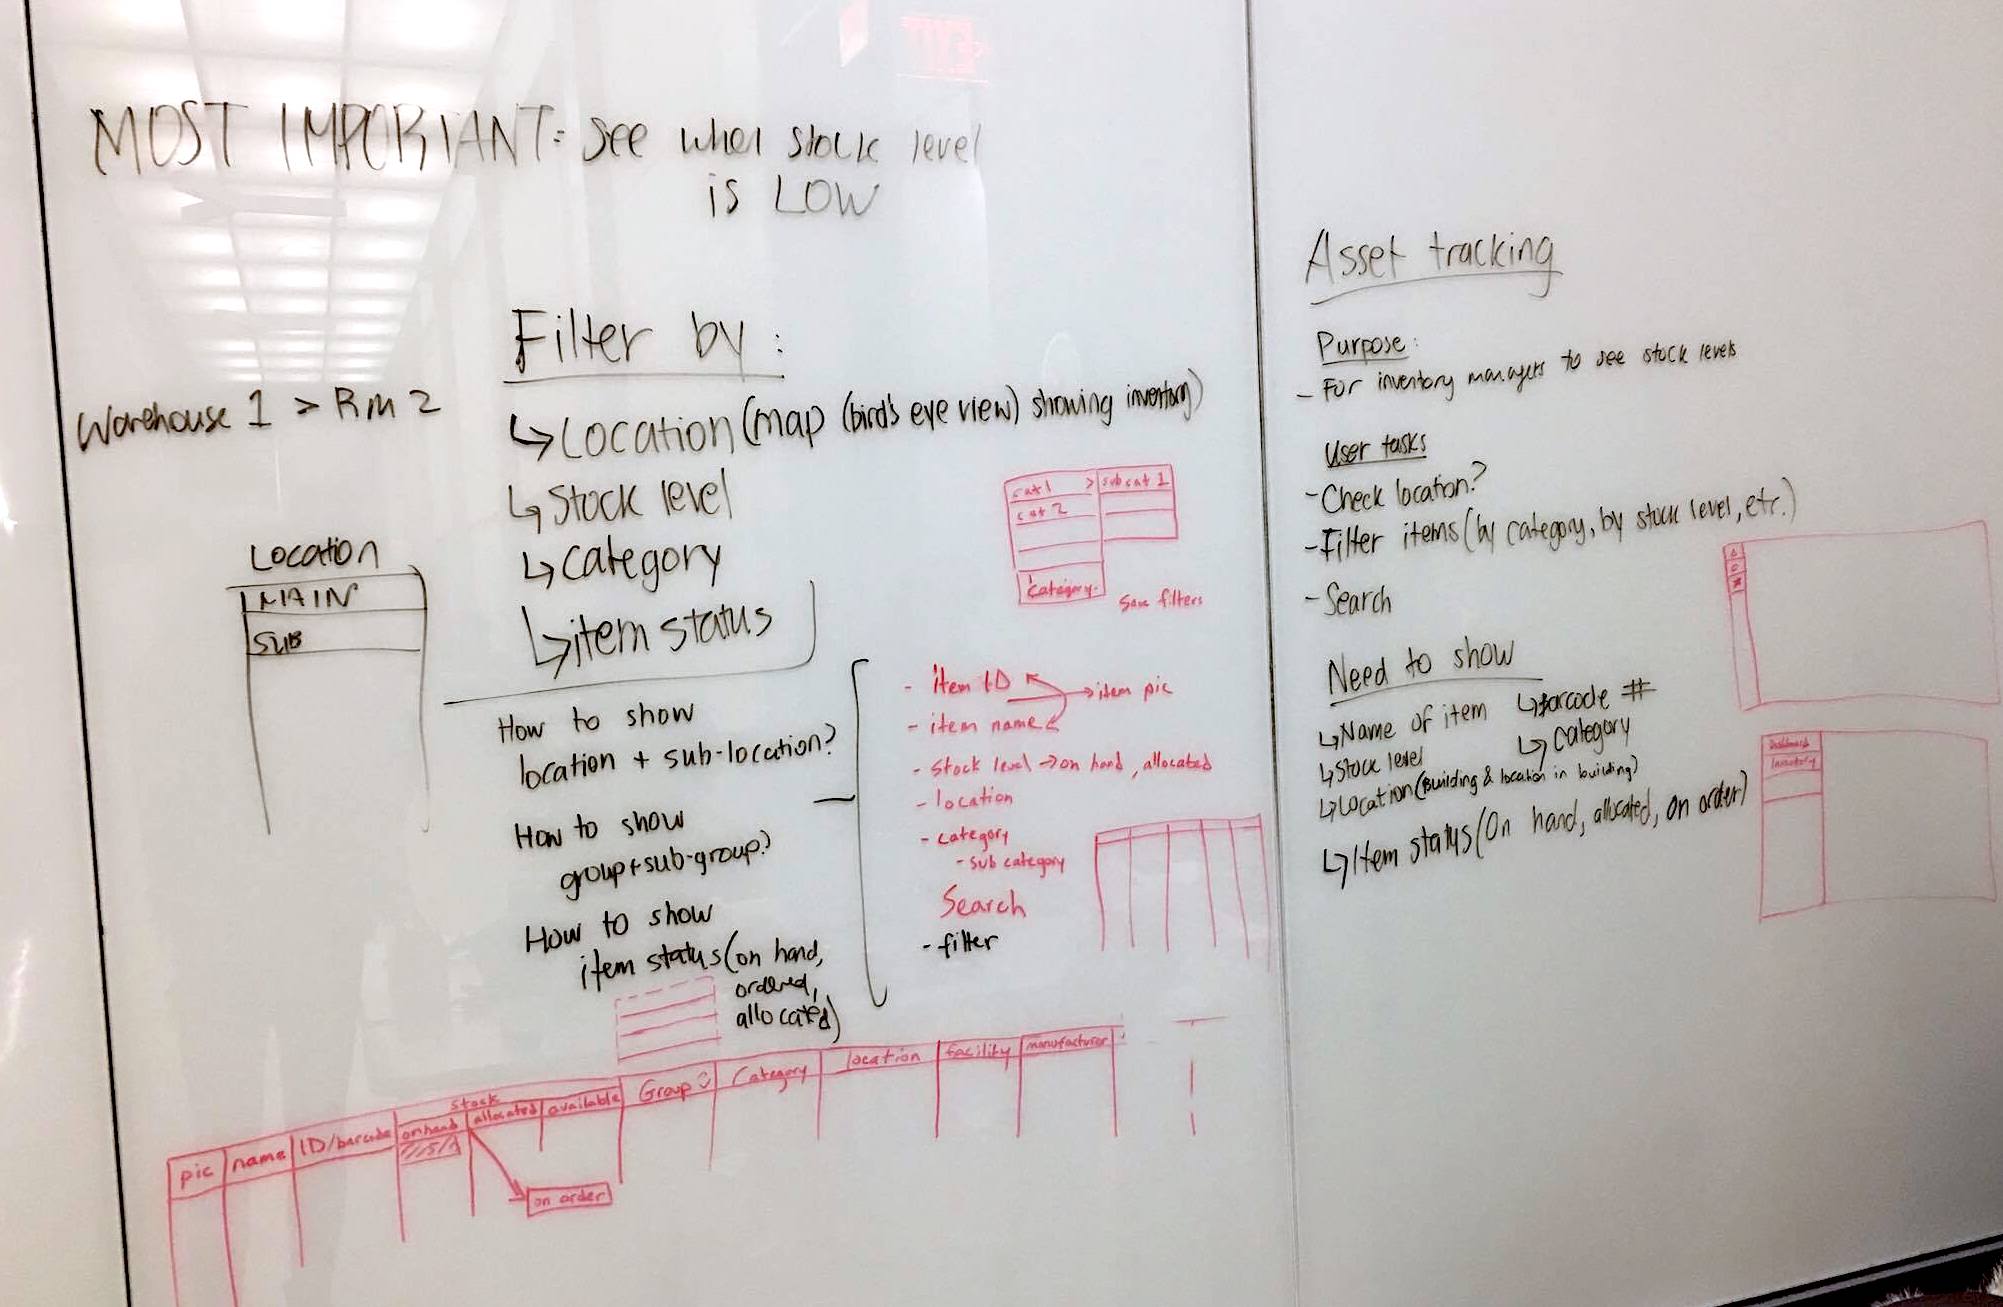 MOST IMPORTANT: see when stock level
is LOW
Warehouse 1 > Rm 2
Location
MAIN
SUB
Filter by:
↳ Location (map (bird's eye view) showing inventory)
↳ Stock level
↳ category
↳ item status
cat 1 > sub cat 1
cat 2
category
Save filters
How to show
location + sub-location?
How to show
group + sub-group?
How to show
item status (on hand,
ordered,
allocated)
- item ID → item pic
- item name
- stock level → on hand, allocated
- location
- category
- sub category
Search
- filter
stock
pic name ID/barcode on hand allocated available Group Category location facility manufacturer
on order
Asset tracking
Purpose:
- For inventory managers to see stock levels
User tasks
- Check location?
- Filter items (by category, by stock level, etc.)
- Search
Need to show
↳ Name of item ↳ Barcode #
↳ Stock level ↳ Category
↳ Location (Building & location in building)
↳ Item status (On hand, allocated, on order)
Dashboard
Inventory
EXIT